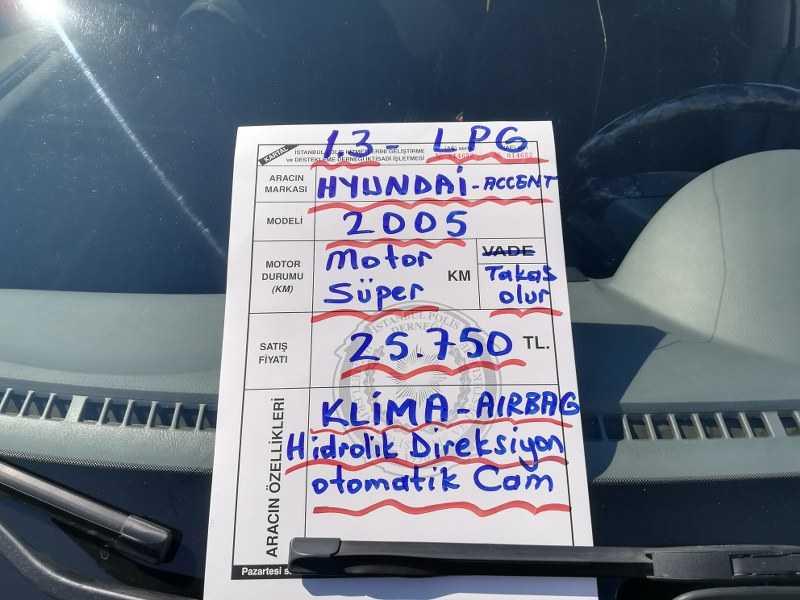 1.3 - LPG
KARTAL
İSTANBUL POLİS HİZMETLERİNİ GELİŞTİRME
ve DESTEKLEME DERNEĞİ İKTİSADİ İŞLETMESİ
ARACIN MARKASI
HYUNDAİ - ACCENT
MODELİ
2005
MOTOR DURUMU (KM)
Motor
Süper
KM
VADE
Takas
olur
SATIŞ FİYATI
25.750 TL.
İSTANBUL POLİS
DERNEĞİ
ARACIN ÖZELLİKLERİ
KLİMA - AIRBAG
Hidrolik Direksiyon
otomatik Cam
Pazartesi